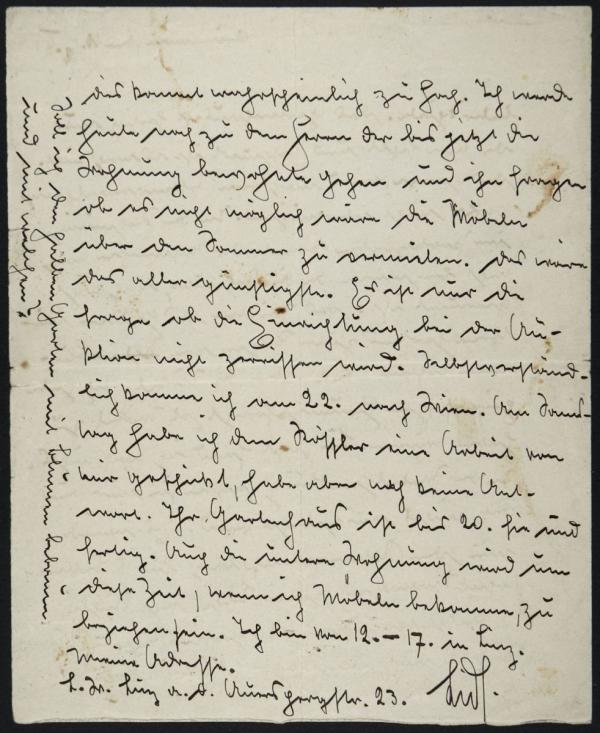 das kommt wahrscheinlich zu hoch. Ich werde
heute noch zu dem Herrn der bis jetzt die
Wohnung bewohnte gehen und ihn fragen
ob es nicht möglich wäre die Möbeln
über den Sommer zu vermieten. das wäre
das aller günstigste. Es ist nur die
frage ob die Einrichtung bei der Au-
ktion nicht zerrissen wird. Selbstverständ-
lich komme ich am 22. nach Wien. Am Sams-
tag habe ich dem Rössler eine Arbeit von
mir geschickt, habe aber noch keine Ant-
wort. Ihr Gartenhaus ist bis 20. hin und
fertig. Auch die untere Wohnung wird um
diese Zeit, wenn ich Möbeln bekomme, zu
beziehen sein. Ich bin von 12. – 17. in Linz.
Meine Adresse.
Linz a. d. Auerspergstr. 23.
Soll ich den Garten mit blumen bebauen
und mit welchen?